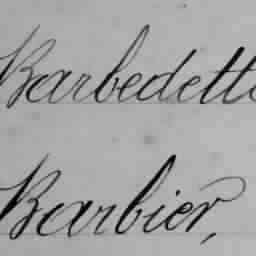 Barbedette
Barbier,